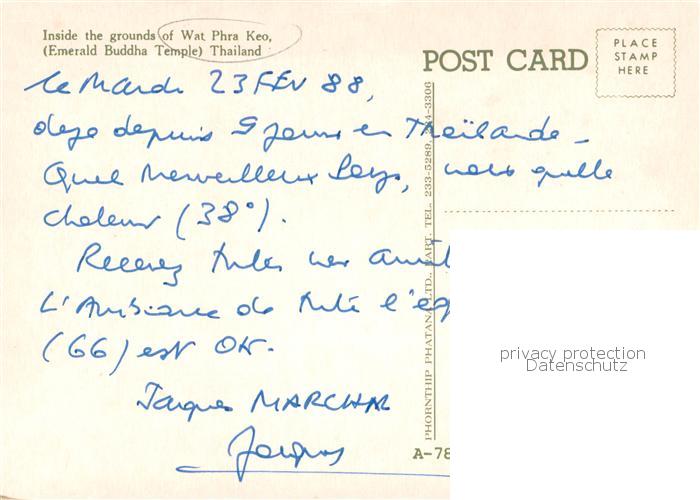 Inside the grounds of Wat Phra Keo,
(Emerald Buddha Temple) Thailand
POST CARD
PLACE
STAMP
HERE
Le Mardi 23 FEV 88,
deja depuis 5 jours en Thaïlande -
Quel Merveilleux Pays, mais quelle
chaleur (38°).
Recevez toutes mes amit
L'Ambiance de toute l'eq
(66) est OK.
Jacques MARCHAL
Jacques
PHORNTHIP PHATANA LTD., PART. TEL. 233-5289, 234-3306
A-78
privacy protection
Datenschutz